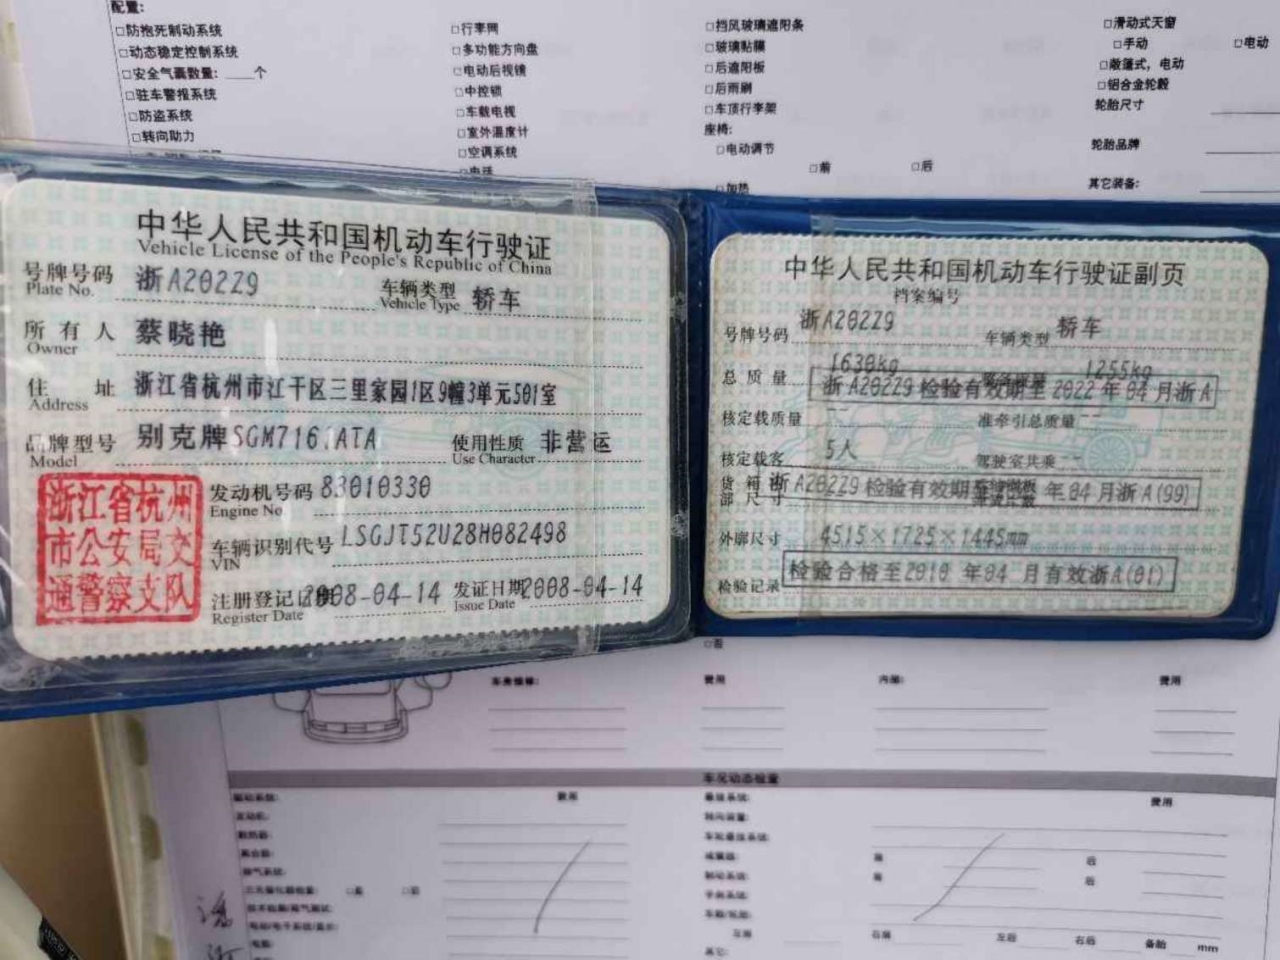 配置:
□防抱死制动系统
□行李网
□挡风玻璃遮阳条
□滑动式天窗
□动态稳定控制系统
□多功能方向盘
□玻璃贴膜
□手动 □电动
□安全气囊数量: 个
□电动后视镜
□后遮阳板
□敞篷式，电动
□驻车警报系统
□中控锁
□后雨刷
□铝合金轮毂
□防盗系统
□车载电视
□车顶行李架
轮胎尺寸
□转向助力
□室外温度计
座椅:
□空调系统
□电动调节
轮胎品牌
□电话
□前 □后
□加热
其它装备:
中华人民共和国机动车行驶证
Vehicle License of the People's Republic of China
号牌号码 浙A202Z9 车辆类型 轿车
Plate No. Vehicle Type
所有人 蔡晓艳
Owner
住址 浙江省杭州市江干区三里家园1区9幢3单元501室
Address
品牌型号 别克牌SGM7161ATA 使用性质 非营运
Model Use Character
浙江省杭州
市公安局交
通警察支队
发动机号码 83010330
Engine No
车辆识别代号 LSGJT52U28H082498
VIN
注册登记日期 2008-04-14 发证日期 2008-04-14
Register Date Issue Date
中华人民共和国机动车行驶证副页
档案编号
号牌号码 浙A202Z9 车辆类型 轿车
总质量 1630kg 1255kg
浙A202Z9检验有效期至2022年04月浙A
核定载质量 -- 准牵引总质量 --
核定载客 5人 驾驶室共乘 --
货箱内
部尺寸
浙A202Z9检验有效期 年04月浙A(99)
外廓尺寸 4515×1725×1445mm
检验记录 检验合格至2010年04月有效浙A(01)
□否
费用
内部:
费用
车况动态检查
费用
悬挂系统:
费用
发动机:
转向装置:
散热器:
离合器:
减震器:
前
后
排气系统:
制动系统:
前
后
□是 □否
手刹系统:
左前 右前 左后 右后 备胎 mm
电脑:
其它: